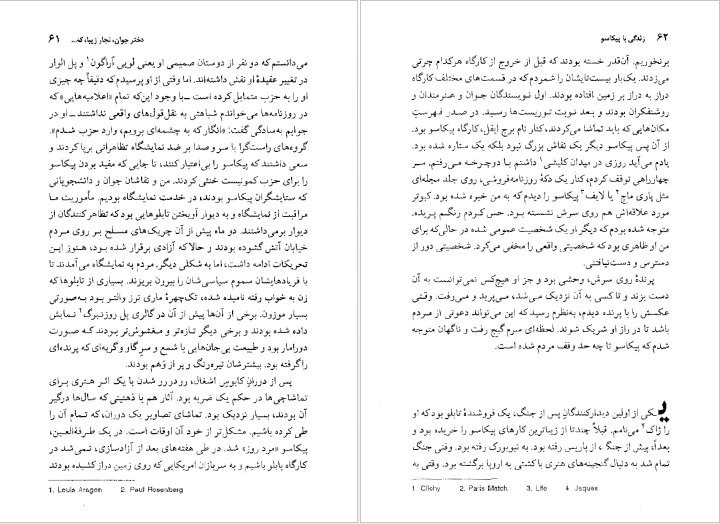 دختر جوان، نجار زیبا، که... ۶۱
می‌دانستم که دو نفر از دوستان صمیمی او یعنی لویی آراگون۱ و پل الوار
در تغییر عقیدهٔ او نقش داشته‌اند. اما وقتی از او پرسیدم که دقیقاً چه چیزی
او را به حزب متمایل کرده است ـ با وجود این‌که تمام «اعلامیه‌هایی» که
در روزنامه‌ها می‌خواندم شباهتی به نقل‌قول‌های واقعی نداشتند ـ او در
جوابم به‌سادگی گفت: «انگار که به چشمه‌ای برویم، وارد حزب شدم».
گروه‌های راست‌گرا با سر و صدا بر ضد نمایشگاه تظاهراتی برپا کردند و
سعی داشتند که پیکاسو را بی‌اعتبار کنند، تا جایی که مفید بودن پیکاسو
را برای حزب کمونیست خنثی کردند. من و نقاشان جوان و دانشجویانی
که ستایشگران پیکاسو بودند، در خدمت نمایشگاه بودیم. مأموریت ما
مراقبت از نمایشگاه و به دیوار آویختن تابلوهایی بود که تظاهرکنندگان از
دیوار برمی‌داشتند. دو ماه پیش از آن چریک‌های مسلح بر روی مردم
خیابان آتش گشوده بودند و حالا که آزادی برقرار شده بود، هنوز این
تحریکات ادامه داشت، اما به شکلی دیگر. مردم به نمایشگاه می‌آمدند تا
با فریادهایشان سموم سیاسی‌شان را بیرون بریزند. بسیاری از تابلوها که
زن به خواب رفته نامیده شده، تک‌چهرهٔ ماری ترز والتر بود به‌صورتی
بسیار موزون. برخی از آن‌ها پیش از آن در گالری پل روزنبرگ۲ نمایش
داده شده بودند و برخی دیگر تازه‌تر و مغشوش‌تر بودند که صورت
دورامار بود و طبیعت بی‌جان‌هایی با شمع و سرِ گاو و گربه‌ای که پرنده‌ای
را گرفته بود. بیشترشان تیره‌رنگ و پر از وَهم بودند.
پس از دوران کابوس اشغال، رودررو شدن با یک اثر هنری برای
تماشاچی‌ها در حکم یک ضربه بود. آثار هم با ذهنیتی که سال‌ها درگیر
آن بودند، بسیار نزدیک بود. تماشای تصاویر یک دوران، که تمام آن را
طی کرده باشیم، مشکل‌تر از خود آن اوقات است. در یک طرفةالعین،
پیکاسو «مرد روز» شد. در طی هفته‌های بعد از آزادسازی، نمی‌شد در
کارگاه پابلو باشیم و به سربازان امریکایی که روی زمین دراز کشیده بودند
1. Louis Aragon 2. Paul Rosenberg
۶۲ زندگی با پیکاسو
برنخوریم. آن‌قدر خسته بودند که قبل از خروج از کارگاه هرکدام چرتی
می‌زدند. یک‌بار بیست‌تایشان را شمردم که در قسمت‌های مختلف کارگاه
دراز به دراز بر زمین افتاده بودند. اول نویسندگان جوان و هنرمندان و
روشنفکران بودند و بعد نوبت توریست‌ها رسید. در صدر فهرستِ
مکان‌هایی که باید تماشا می‌کردند، کنار نام برج ایفل، کارگاه پیکاسو بود.
از آن پس پیکاسو دیگر یک نقاش بزرگ نبود بلکه یک ستاره شده بود.
یادم می‌آید روزی در میدان کلیشی۱ داشتم با دوچرخه می‌رفتم. سر
چهارراهی توقف کردم، کنار یک دکهٔ روزنامه‌فروشی، روی جلد مجله‌ای
مثل پاری ماچ۲ یا لایف۳ پیکاسو را دیدم که به من خیره شده بود. کبوتر
مورد علاقه‌اش هم روی سرش نشسته بود. حس کردم رنگم پریده.
متوجه شده بودم که دیگر او یک شخصیت عمومی شده در حالی که برای
من او ظاهری بود که شخصیتی واقعی را مخفی می‌کرد. شخصیتی دور از
دسترس و دست‌نیافتنی.
پرندهٔ روی سرش، وحشی بود و جز او هیچ‌کس نمی‌توانست به آن
دست بزند و تا کسی به آن نزدیک می‌شد، می‌پرید و می‌رفت. وقتی
عکسش را با پرنده دیدم، به‌نظرم رسید که این می‌تواند دعوتی از مردم
باشد تا در راز او شریک شوند. لحظه‌ای سرم گیج رفت و ناگهان متوجه
شدم که پیکاسو تا چه حد وقف مردم شده است.
یکی از اولین دیدارکنندگان پس از جنگ، یک فروشندهٔ تابلو بود که او
را ژاک۴ می‌نامم. قبلاً چندتا از زیباترین کارهای پیکاسو را خریده بود و
بعداً، پیش از جنگ، از پاریس رفته بود. به نیویورک رفته بود. وقتی جنگ
تمام شد به دنبال گنجینه‌های هنری با کشتی به اروپا برگشته بود. وقتی به
1. Clichy 2. Paris Match 3. Life 4. Jaques